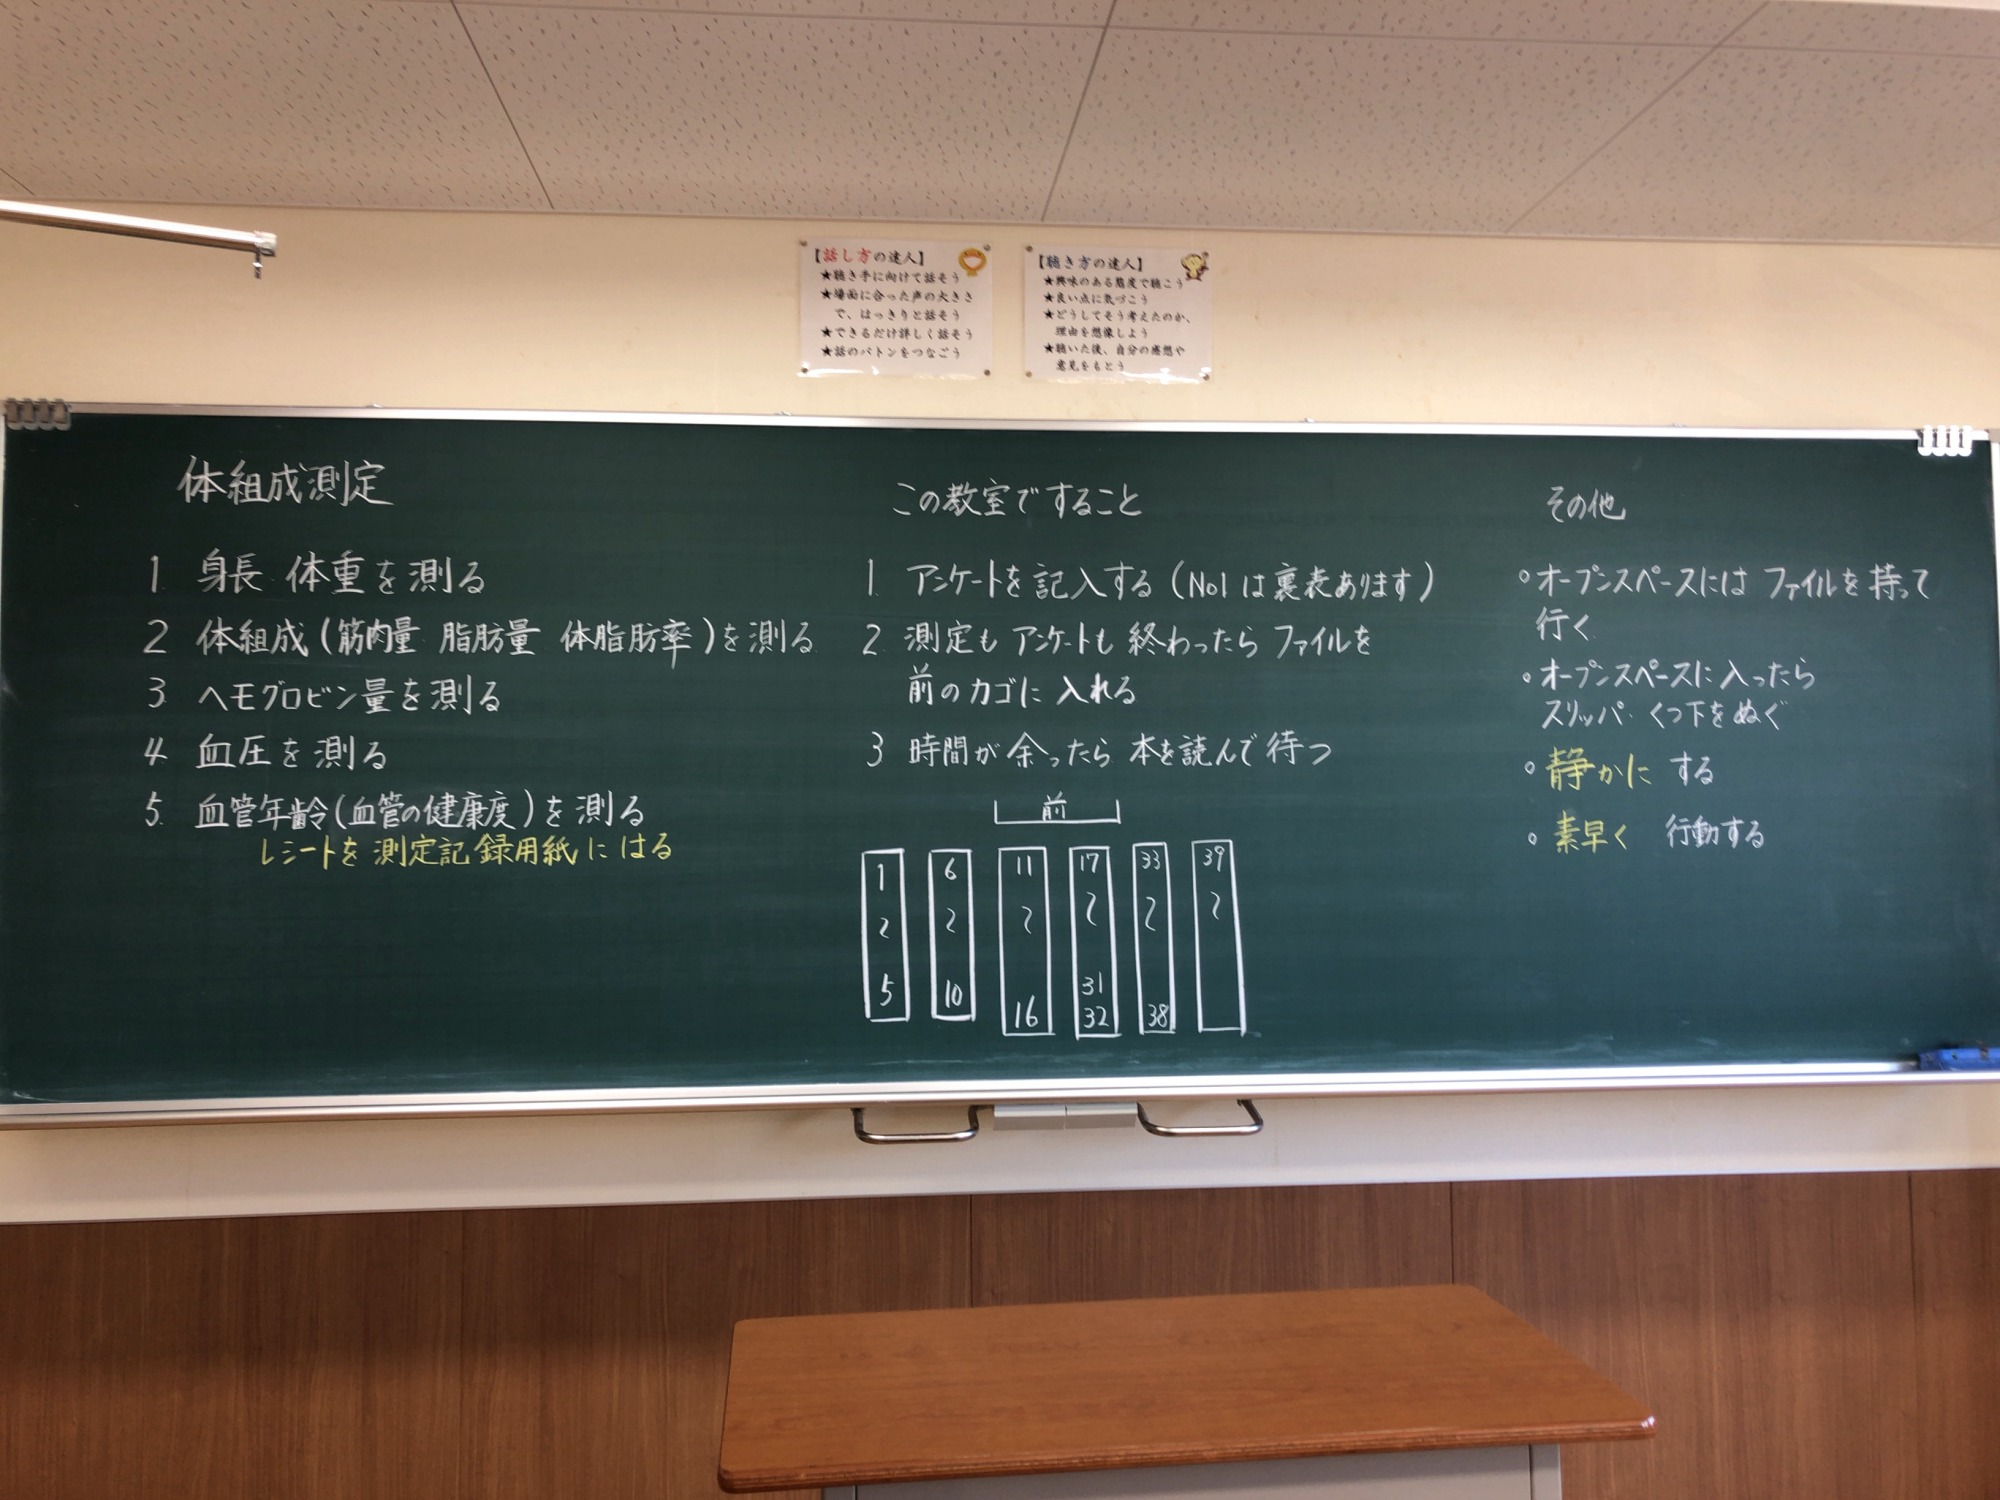 【話し方の達人】
★聴き手に向けて話そう
★場面に合った声の大きさ
で、はっきりと話そう
★できるだけ詳しく話そう
★話のバトンをつなごう
【聴き方の達人】
★興味のある態度で聴こう
★良い点に気づこう
★どうしてそう考えたのか、
理由を想像しよう
★聴いた後、自分の感想や
意見をもとう
体組成測定
1. 身長 体重を測る
2 体組成(筋肉量 脂肪量 体脂肪率)を測る
3. ヘモグロビン量を測る
4 血圧を測る
5. 血管年齢(血管の健康度)を測る
レシートを測定記録用紙にはる
この教室ですること
1. アンケートを記入する(No1は裏表あります)
2. 測定もアンケートも終わったらファイルを
前のカゴに入れる
3 時間が余ったら本を読んで待つ
前
1 6 11 17 33 39
〜 〜 〜 〜 〜 〜
5 10 16 31 38
32
その他
○オープンスペースにはファイルを持って
行く
○オープンスペースに入ったら
スリッパ・くつ下をぬぐ
○静かにする
○素早く 行動する